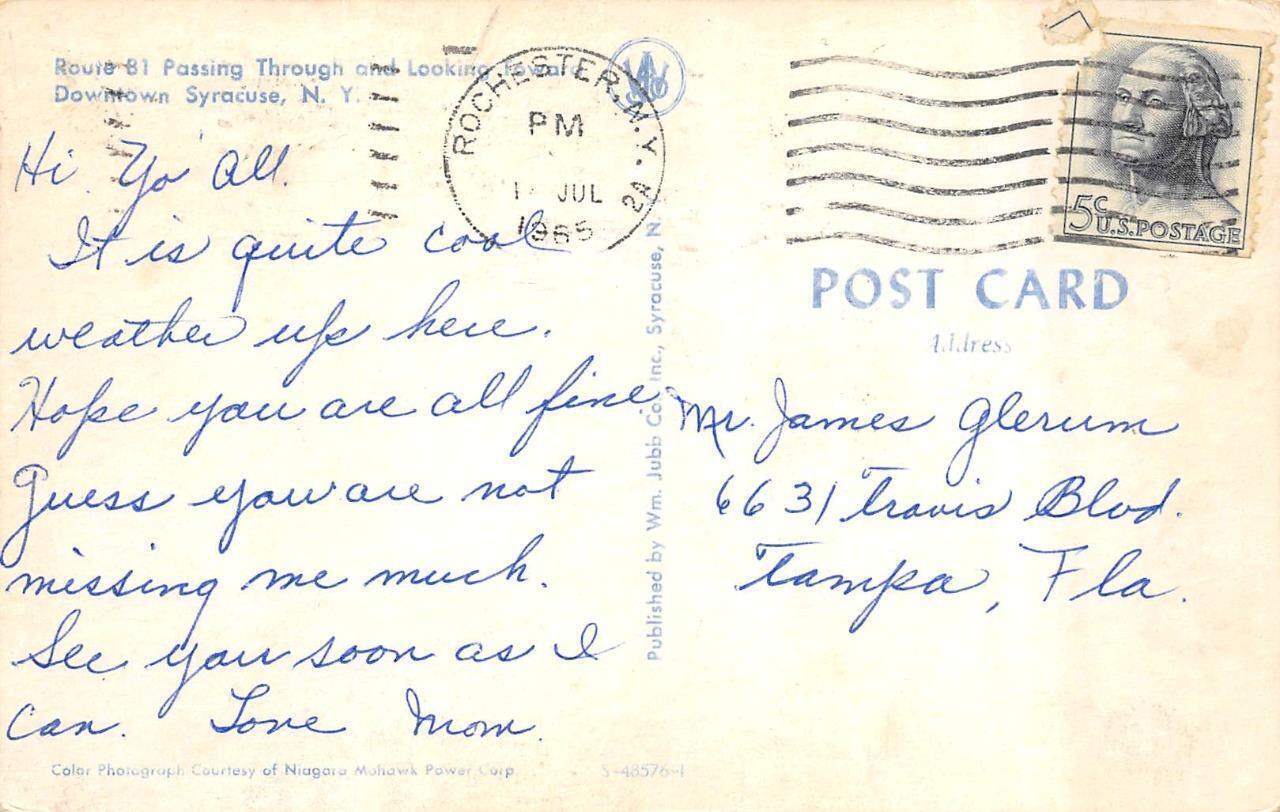 Route 81 Passing Through and Looking Toward
Downtown Syracuse, N. Y.
Hi Yo' All.
It is quite cool
weather up here.
Hope you are all fine
Guess you are not
missing me much.
See you soon as I
can. Love Mom.
Color Photograph Courtesy of Niagara Mohawk Power Corp.
S-48576-1
Published by Wm. Jubb Co., Inc., Syracuse, N.
ROCHESTER, N.Y.
PM
JUL
1965
2A
5c U.S. POSTAGE
POST CARD
Address
Mr. James Glerum
6631 Travis Blvd.
Tampa, Fla.